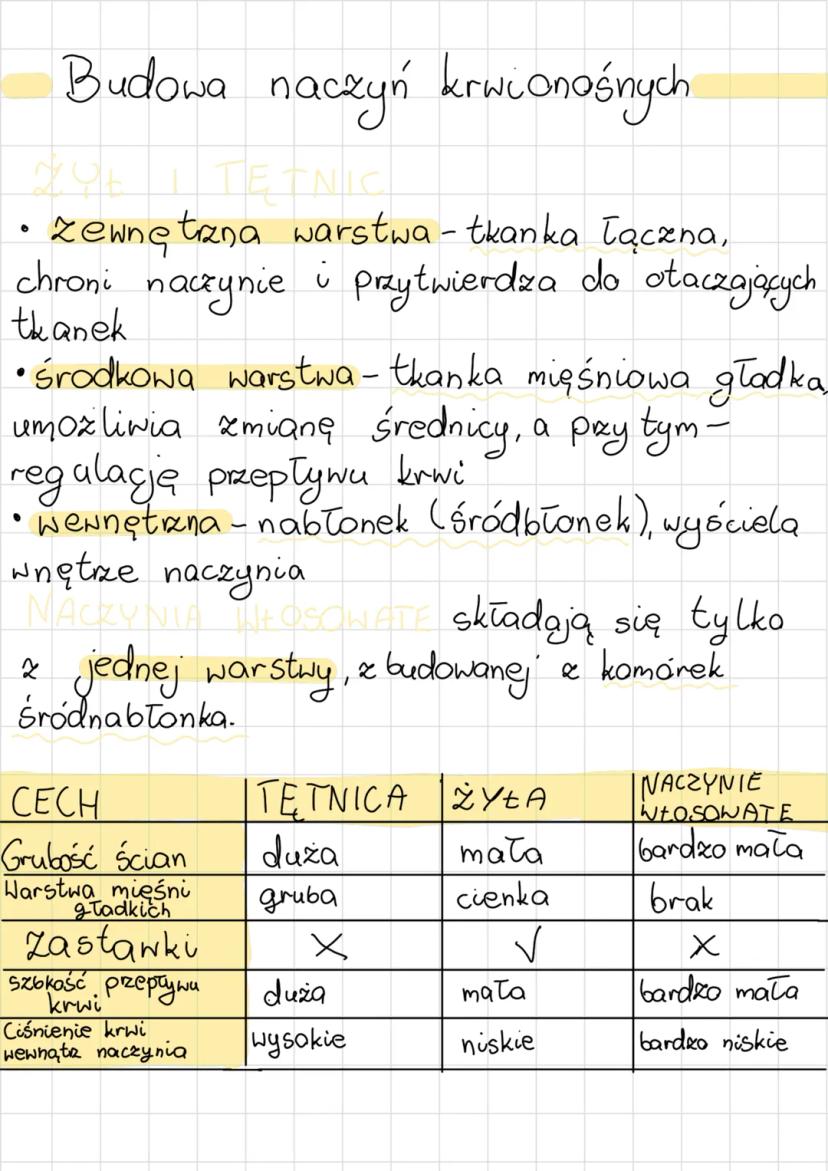 Budowa naczyń krwionośnych
ŻYŁ I TĘTNIC
• zewnętrzna warstwa - tkanka łączna,
chroni naczynie i przytwierdza do otaczających
tkanek
• środkowa warstwa - tkanka mięśniowa gładka,
umożliwia zmianę średnicy, a przy tym -
regulację przepływu krwi
• wewnętrzna - nabłonek (śródbłonek), wyściela
wnętrze naczynia
NACZYNIA WŁOSOWATE składają się tylko
z jednej warstwy, zbudowanej z komórek
śródnabłonka.
CECH TĘTNICA ŻYŁA NACZYNIE WŁOSOWATE
Grubość ścian duża mała bardzo mała
Warstwa mięśni gładkich gruba cienka brak
Zastawki X √ X
Szbkość przepływu krwi duża mała bardzo mała
Ciśnienie krwi wewnątz naczynia wysokie niskie bardzo niskie